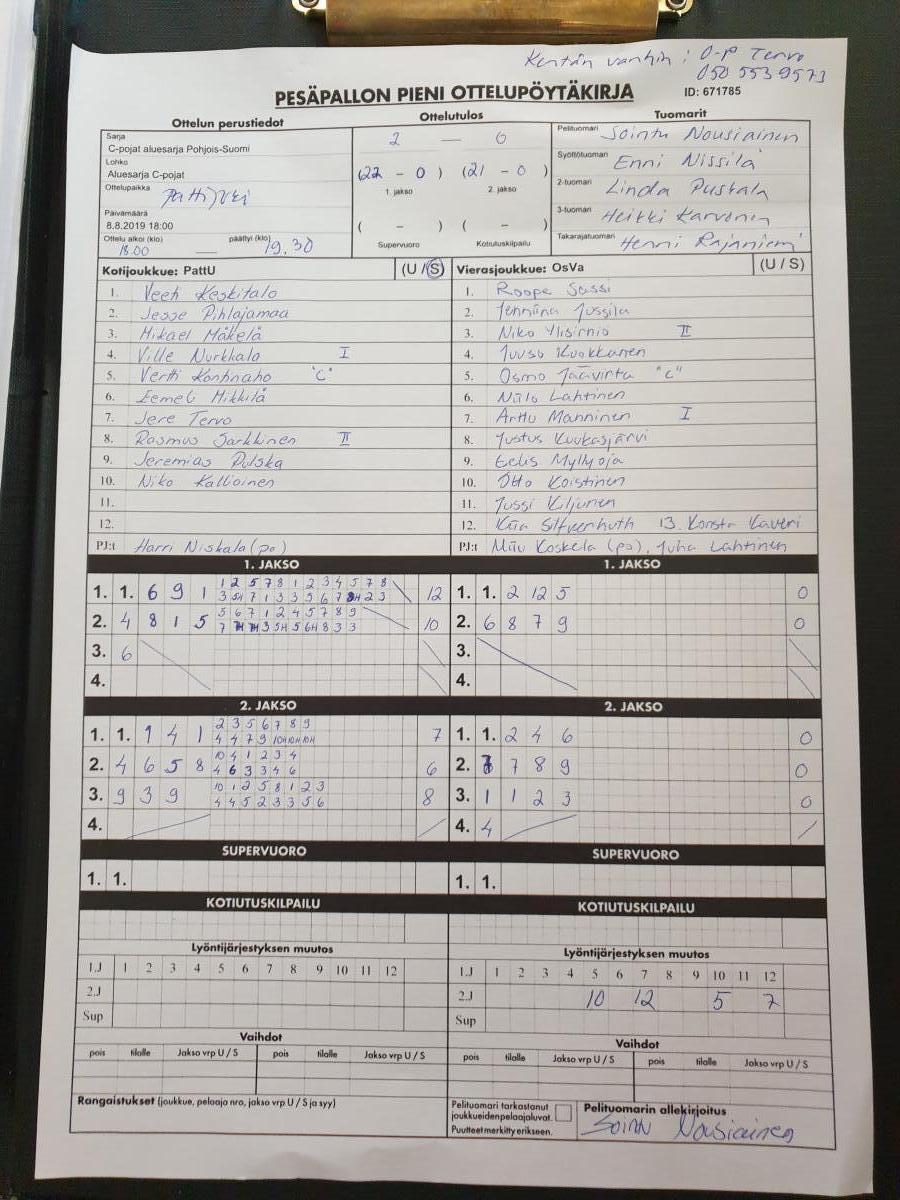 Kentän vanhin: O-P Tervo
050 553 9573
PESÄPALLON PIENI OTTELUPÖYTÄKIRJA
ID: 671785
Ottelun perustiedot
Ottelutulos
Tuomarit
Sarja
C-pojat aluesarja Pohjois-Suomi
Lohko
Aluesarja C-pojat
Ottelupaikka Pattijoki
Päivämäärä
8.8.2019 18:00
Ottelu alkoi (klo) päättyi (klo)
18.00 — 19.30
2 — 0
(22 - 0) (21 - 0)
1. jakso 2. jakso
( - ) ( - )
Supervuoro Kotiutuskilpailu
Pelituomari Sointu Nousiainen
Syöttötuomari Enni Nissilä
2-tuomari Linda Puskala
3-tuomari Heikki Karvonen
Takarajatuomari Henri Rajaniemi
Kotijoukkue: PattU (U / S)
1. Veeti Keskitalo
2. Jesse Pihlajamaa
3. Mikael Mäkelä
4. Ville Nurkkala I
5. Vertti Kontinaho "C"
6. Eemeli Mikkilä
7. Jere Tervo
8. Rasmus Sarkkinen II
9. Jeremias Pulska
10. Niko Kallioinen
11.
12.
PJ:t Harri Niskala (po)
Vierasjoukkue: OsVa (U / S)
1. Roope Sassi
2. Jenniina Jussila
3. Niko Ylisirniö II
4. Juuso Kuokkanen
5. Osmo Jäävirta "C"
6. Niilo Lahtinen
7. Arttu Manninen I
8. Justus Kuukasjärvi
9. Eelis Myllyoja
10. Otto Koistinen
11. Jussi Kiljunen
12. Kaia Silfverhuth 13. Konsta Kaveri
PJ:t Miiu Koskela (po), Juha Lahtinen
1. JAKSO
1. 1. 6 9 1 1 2 5 7 8 1 2 3 4 5 7 8 12
2. 4 8 1 5 5 6 7 1 2 4 5 7 8 9 10
3. 6
4.
1. JAKSO
1. 1. 2 12 5 0
2. 6 8 7 9 0
3.
4.
2. JAKSO
1. 1. 9 4 1 2 3 5 6 7 8 9 7
4 4 7 9 10H 10H 10H
2. 4 6 5 8 10 4 1 2 3 4 6
4 6 3 3 4 6
3. 9 3 9 10 1 2 5 8 1 2 3 8
4 4 5 2 3 3 5 6
4.
2. JAKSO
1. 1. 2 4 6 0
2. 7 8 9 0
3. 1 1 2 3 0
4. 4
SUPERVUORO
1. 1.
SUPERVUORO
1. 1.
KOTIUTUSKILPAILU
KOTIUTUSKILPAILU
Lyöntijärjestyksen muutos
1.J 1 2 3 4 5 6 7 8 9 10 11 12
2.J
Sup
Lyöntijärjestyksen muutos
1.J 1 2 3 4 5 6 7 8 9 10 11 12
2.J 10 12 5 7
Sup
Vaihdot
pois tilalle Jakso vrp U / S pois tilalle Jakso vrp U / S
Vaihdot
pois tilalle Jakso vrp U / S pois tilalle Jakso vrp U / S
Rangaistukset (joukkue, pelaaja nro, jakso vrp U / S ja syy)
Pelituomari tarkastanut
joukkueiden pelaajaluvat.
Puutteet merkitty erikseen.
Pelituomarin allekirjoitus
Sointu Nousiainen